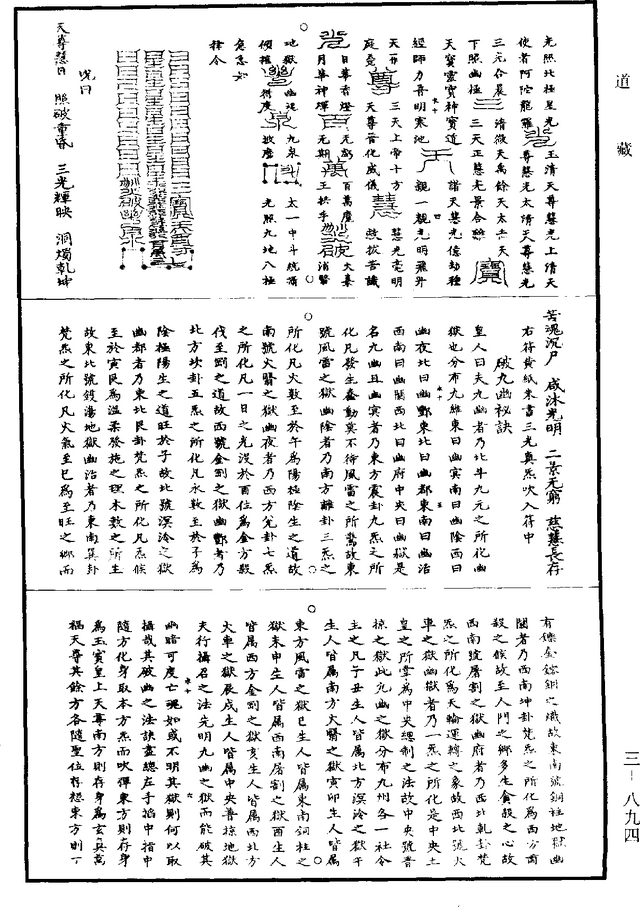 道藏
光照北極星光 玉清天尊慧光上清天
使者阿陀龍羅 尊慧光太清天尊慧光
三元合晨 三 清微天禹餘天太赤天
下照幽極 三天正慧光景合 寶
天寶靈寶神寶道 諸天慧光億劫種
經師力吾明寒池 觀一觀光明飛昇
天尊 三天上帝十方 慧光毫明
庭 尊 天尊吾化威儀 慧 救拔苦
日尊香燈 百萬魔 火
月尊神輝 百 萬 王拱手 消翳
地獄 幽泥 九泉 斗 太一中斗統領
傾摧 得度 披塵 光照九地八極
急急如
律令
咒曰
天尊慧日 照破重昏 三光輝映 洞燭乾坤
苦魂沉尸 咸沐光明 二景无窮 慈慧長存
右符黃紙朱書三光真炁吹入符中
破九幽秘訣
皇人曰夫九幽者乃北斗九元之所化幽
獄也分布九維東曰幽冥南曰幽陰西曰
幽夜北曰幽酆東北曰幽都東南曰幽治
西南曰幽關西北曰幽府中央曰幽獄是
名九幽且幽冥者乃東方震卦九炁之所
化凡發生蠢動莫不待風雷之所驚故東
號風雷之獄幽陰者乃南方離卦三炁之
所化凡火數至於午為陽極陰生之道故
南號火翳之獄幽夜者乃西方兌卦七炁
之所化凡一日之光沒於酉位為金方殺
伐至剛之道故西號金剛之獄幽酆者乃
北方坎卦五炁之所化凡水數至於子為
陰極陽生之道旺於子故北號溟泠之獄
幽都者乃東北艮卦梵炁之所化凡炁候
至於寅艮為溫柔發施之理木數之所生
故東北號鑊湯地獄幽治者乃東南巽卦
梵炁之所化凡火氣至巳為至旺之鄉而
有鑠金鎔銅之熾故東南號銅柱地獄幽
關者乃西南坤卦梵炁之所化為西方肅
殺之候故至人門之鄉多生貪殺之心故
西南號屠割之獄幽府者乃西北乾卦梵
炁之所化為天輪運轉之象故西北號火
車之獄幽獄者乃一炁之所化是中央土
皇之所掌為中央總制之法故中央號普
掠之獄此九幽之獄分布九州各一社令
主之凡子丑生人皆屬北方溟泠之獄午
生人皆屬南方火翳之獄寅卯生人皆屬
東方風雷之獄巳生人皆屬東南銅柱之
獄未申生人皆屬西南屠割之獄酉生人
皆屬西方金剛之獄亥生人皆屬西北方
火車之獄辰戌生人皆屬中央普掠地獄
夫行攝召之法先明九幽之獄而能破其
幽暗可度亡魂如或不明其獄則何以取
攝哉其破幽之法訣盡總左手掐中指中
隨方化身取本方炁而吹彈東方則存身
為玉寶皇上天尊南方則存身為玄真萬
福天尊其餘方各隨聖位存想東方則丁
三—八九四